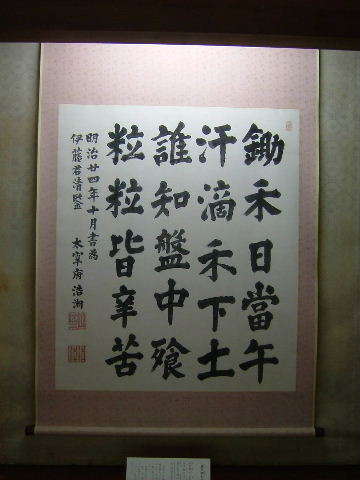 鋤禾日當午
汗滴禾下土
誰知盤中飧
粒粒皆辛苦
明治廿四年十月書為
伊藤君清鑒
太宰府 浩湖